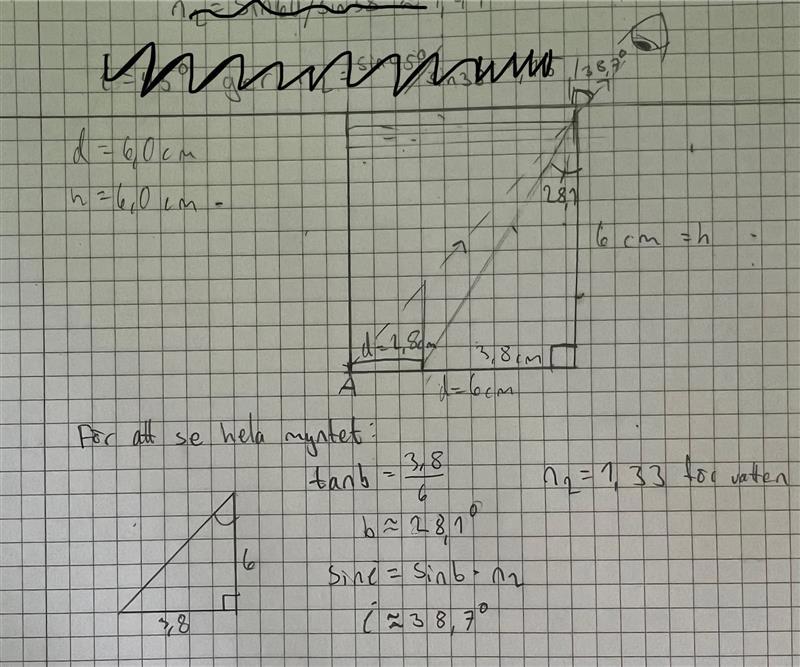 138,7°
d = 6,0 cm
h = 6,0 cm
28,1
6 cm = h
d = 2,8cm
3,8cm
A
d = 6cm
För att se hela myntet:
tanb = 3,8/6
n₂ = 1,33 för vatten
b ≈ 28,1°
sini = sinb · n₂
i ≈ 38,7°
6
3,8